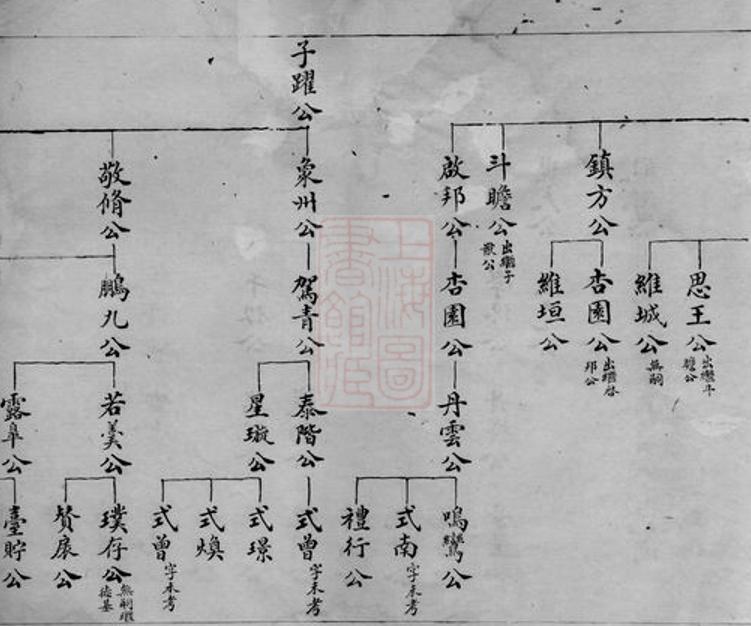 子躍公
鎮方公
斗瞻公 出繼子
猷公
啟邦公
象州公
敬脩公
思王公 出繼斗
瞻公
維城公 無嗣
杏園公 出繼啓
邦公
維垣公
杏園公
駕青公
鵬九公
丹雲公
泰階公
星璇公
若美公
露皐公
鳴鸞公
式南 字未考
禮行公
式曾 字未考
式璟
式煥
式曾 字未考
璞存公 無嗣繼
德基
贊宸公
臺貯公
上海圖
書館藏